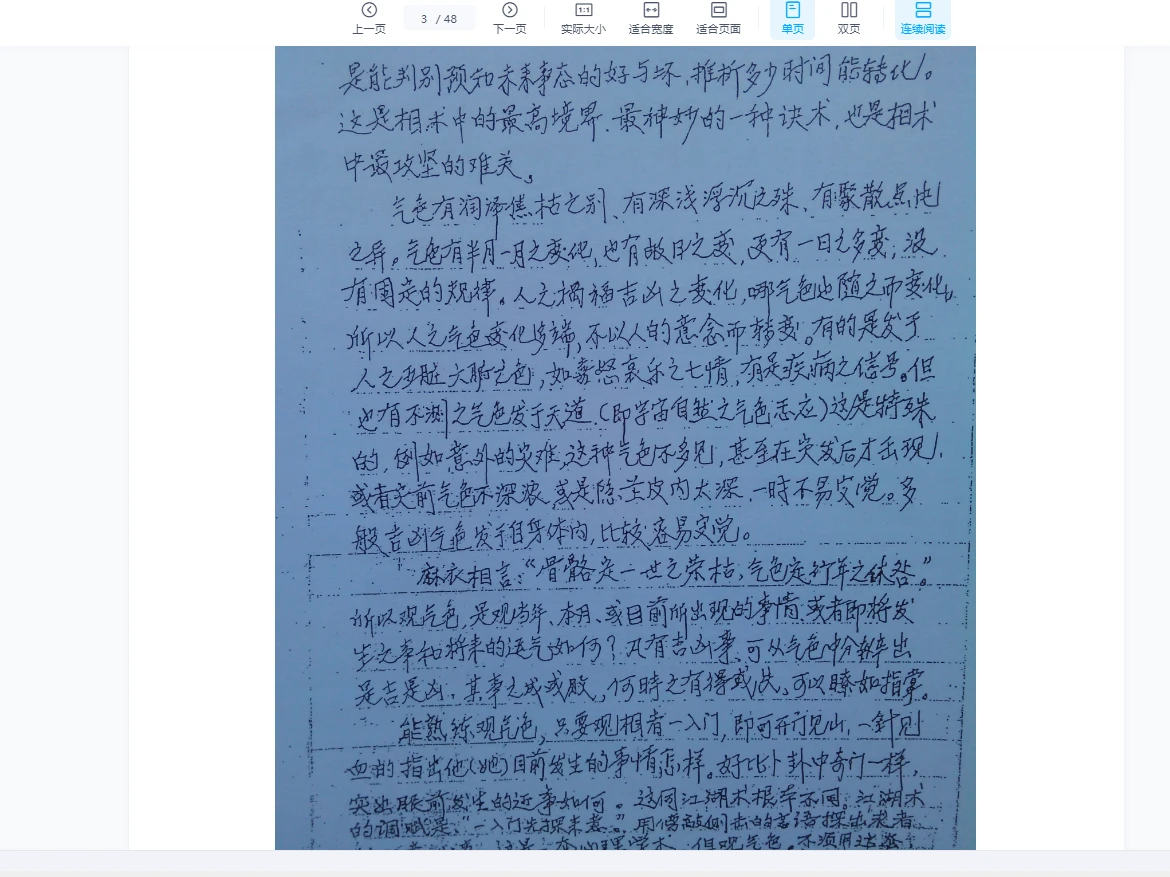 上一页
3 / 48
下一页
1:1
实际大小
适合宽度
适合页面
单页
双页
连续阅读
是能判别预知未来事态的好与坏,推析多少时间能转化。
这是相术中的最高境界.最神妙的一种诀术,也是相术
中最攻坚的难关。
气色有润泽焦枯之别、有深浅浮沉之殊、有聚散
之异。气色有半月一月之变化,也有数日之变,更有一日之多变,没
有固定的规律。人之祸福吉凶之变化,哪气色也随之而变化,
所以人之气色变化多端,不以人的意念而转变。有的是发于
人之五脏六腑之色,如喜怒哀乐之七情,有是疾病之信号。但
也有不测之气色发于天道.(即宇宙自然之气色志应)这是特殊
的,例如意外的灾难,这种气色不多见,甚至在灾发后才出现,
或者灾前气色不深浓,或是隐至皮内太深,一时不易察觉。多
般吉凶气色发于自身体内,比较容易察觉。
麻衣相言:“骨骼定一世之荣枯,气色定行年之休咎。”
所以观气色,是观当年、本月、或目前所出现的事情,或者即将发
生之事和将来的运气如何?凡有吉凶事,可从气色中分辨出
是吉是凶.其事之成或败,何时之有得或失,可以瞭如指掌。
能熟练观气色,只要观相者一入门,即可开门见山,一针见
血的指出他(她)目前发生的事情怎样。好比卜卦中奇门一样,
突出眼前发生的近事如何。这同江湖术根本不同。江湖术
的词赋是:“一入门先探来意。”用傍敲侧击的言语探出求者
但观气色.不须用这些